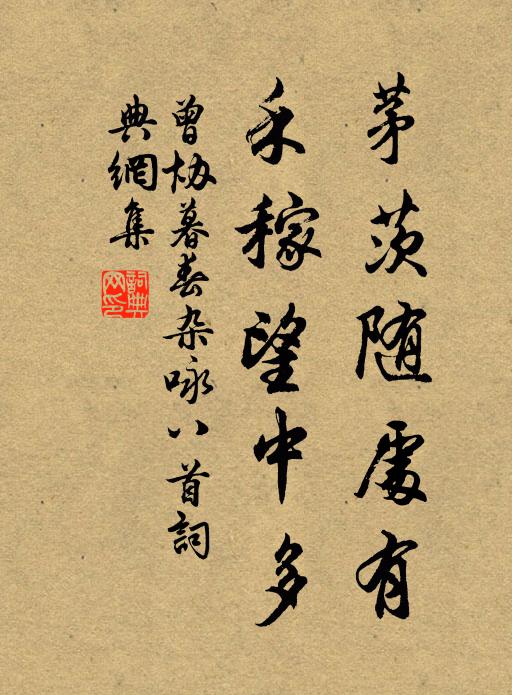 茅茨随處有
禾稼望中多
曾协暮春杂咏八首詞
典網集
詞典网印